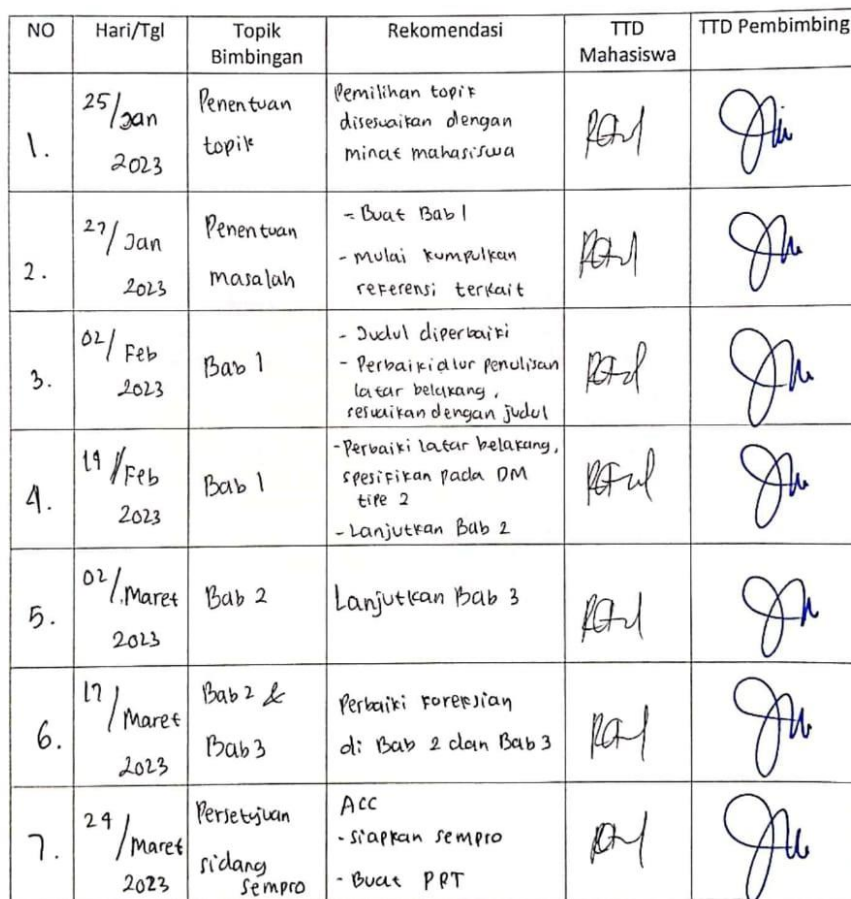 NO Hari/Tgl Topik Bimbingan Rekomendasi TTD Mahasiswa TTD Pembimbing
1. 25/Jan 2023 Penentuan topik Pemilihan topik disesuaikan dengan minat mahasiswa
2. 27/Jan 2023 Penentuan masalah - Buat Bab 1 - mulai kumpulkan referensi terkait
3. 02/Feb 2023 Bab 1 - Judul diperbaiki - Perbaiki alur penulisan latar belakang, sesuaikan dengan judul
4. 19/Feb 2023 Bab 1 - Perbaiki latar belakang, spesifikan pada DM tipe 2 - Lanjutkan Bab 2
5. 02/Maret 2023 Bab 2 Lanjutkan Bab 3
6. 17/Maret 2023 Bab 2 & Bab 3 Perbaiki koreksian di Bab 2 dan Bab 3
7. 24/Maret 2023 Persetujuan sidang sempro ACC - siapkan sempro - Buat PPT